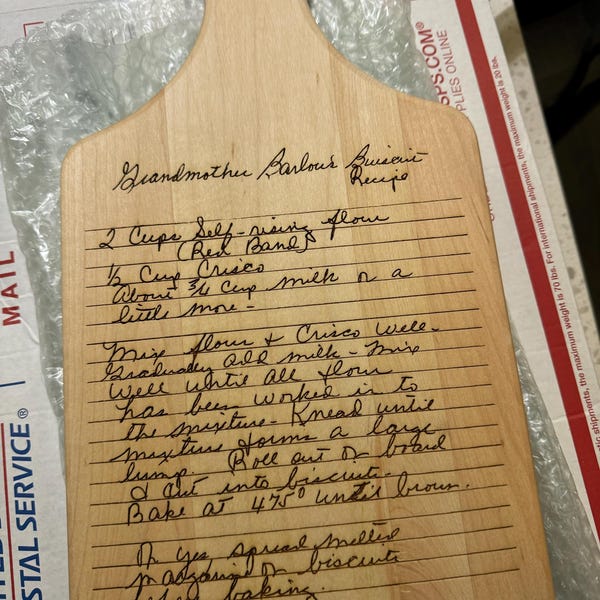 Grandmother Barlow's Buiscuit
Recipe
2 Cups Self-rising flour
(Red Band)
1/2 Cup Crisco
About 3/4 Cup milk or a
little more -
Mix flour & Crisco well -
Gradually add milk - Mix
well until all flour
has been worked in to
the mixture - Knead until
mixture forms a large
lump. Roll out on board
& cut into biscuits -
Bake at 475° until brown.
Oh yes spread melted
margarine on biscuits
baking.
MAIL
STAL SERVICE®
SPS.COM®
PLIES ONLINE
the maximum weight is 70 lbs. For international shipments, the maximum weight is 20 lbs.